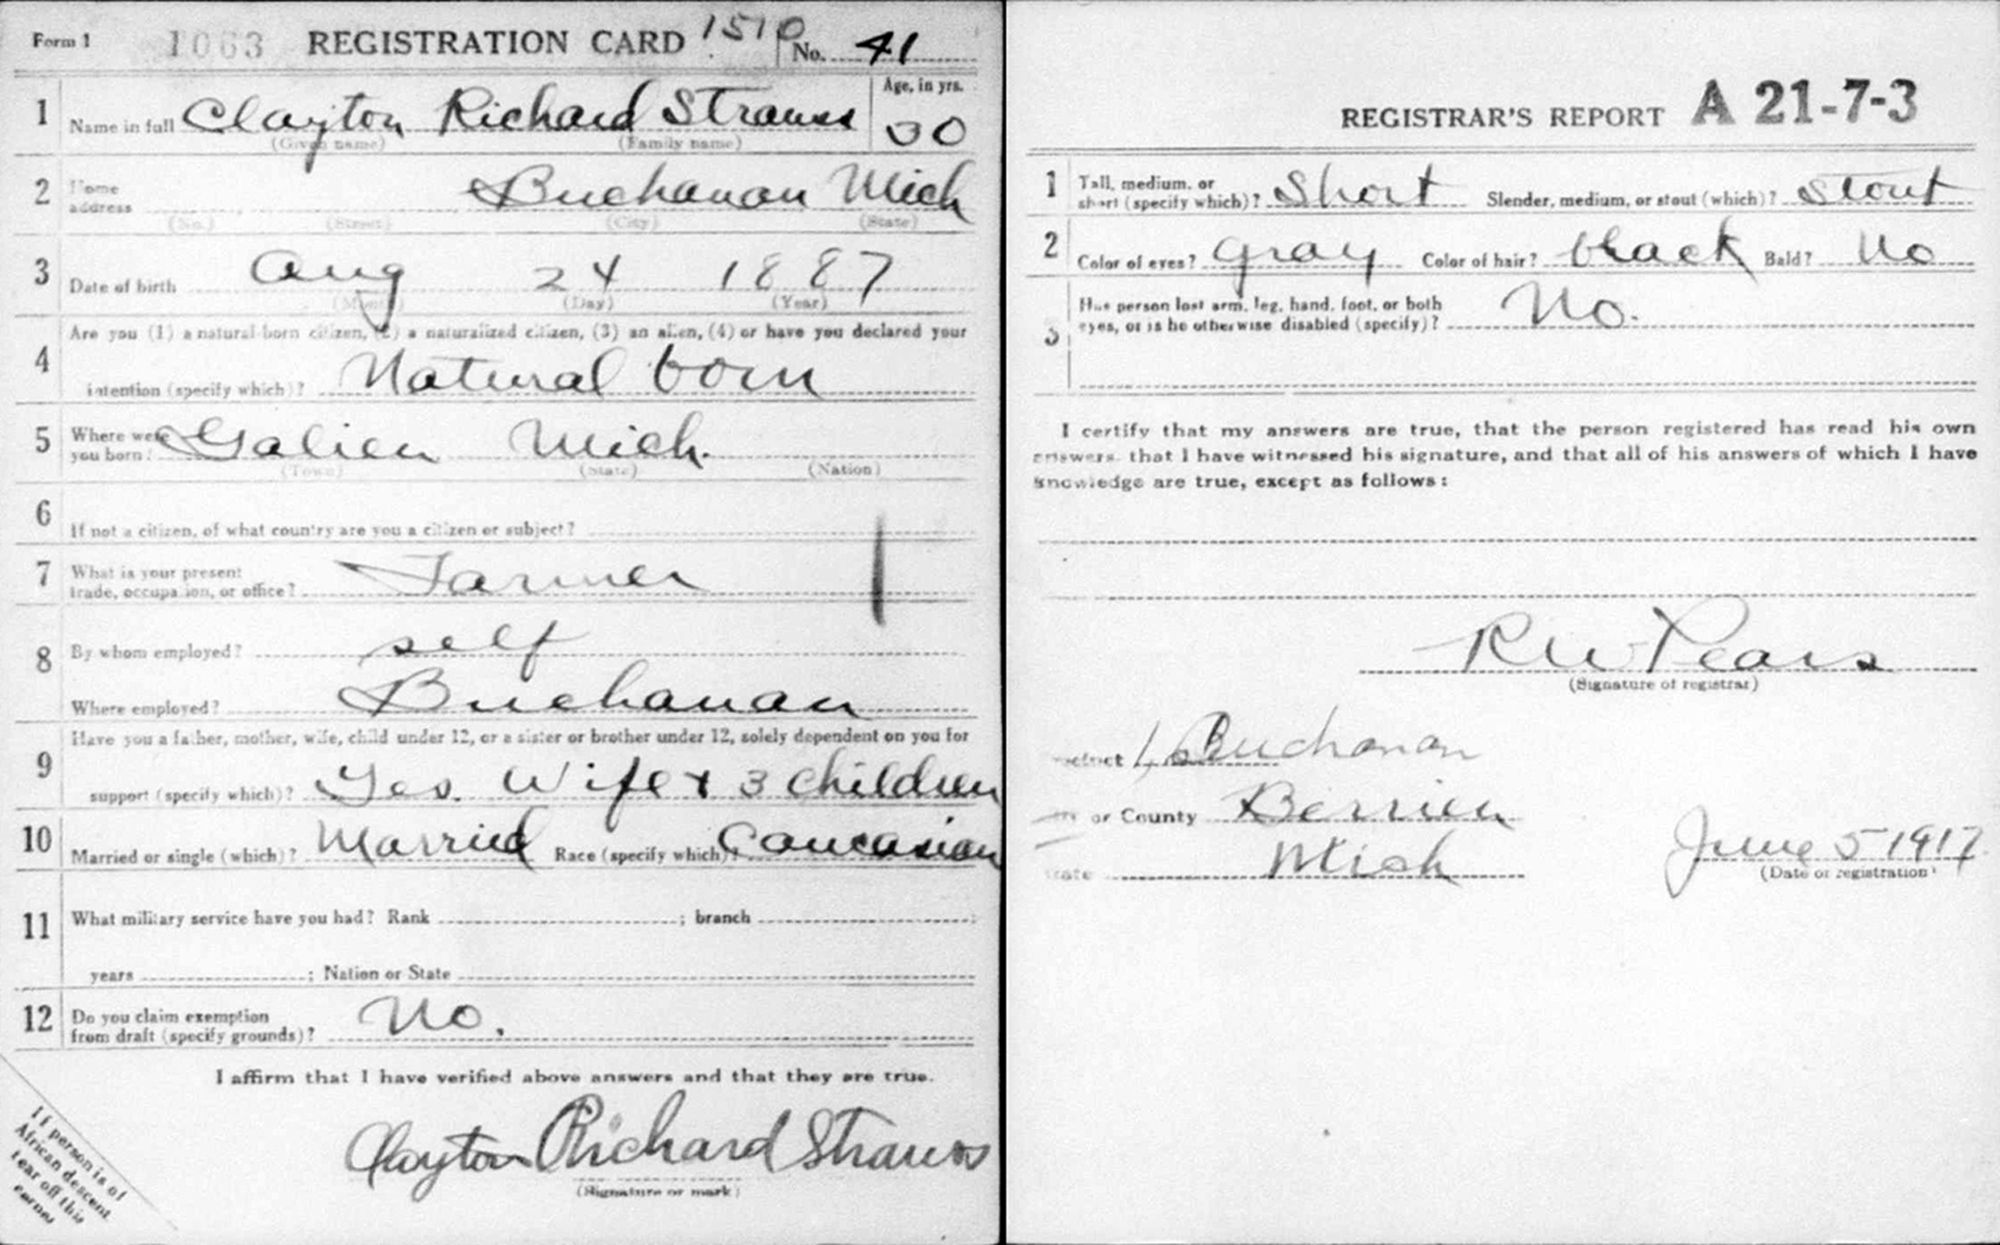 Form 1 1063 REGISTRATION CARD 1510 No. 41
1 Name in full Clayton Richard Strauss Age, in yrs. 30
(Given name) (Family name)
2 Home address Buchanan Mich
(No.) (Street) (City) (State)
3 Date of birth Aug 24 1887
(Month) (Day) (Year)
4 Are you (1) a natural-born citizen, (2) a naturalized citizen, (3) an alien, (4) or have you declared your
intention (specify which)? Natural born
5 Where were you born? Galien Mich.
(Town) (State) (Nation)
6 If not a citizen, of what country are you a citizen or subject?
7 What is your present
trade, occupation, or office? Farmer
8 By whom employed? self
Where employed? Buchanan
9 Have you a father, mother, wife, child under 12, or a sister or brother under 12, solely dependent on you for
support (specify which)? Yes. Wife + 3 children
10 Married or single (which)? Married Race (specify which)? Caucasian
11 What military service have you had? Rank ; branch ;
years ; Nation or State
12 Do you claim exemption
from draft (specify grounds)? No.
I affirm that I have verified above answers and that they are true.
Clayton Richard Strauss
(Signature or mark)
If person is of
African descent
tear off this
corner
REGISTRAR'S REPORT A 21-7-3
1 Tall, medium, or
short (specify which)? Short Slender, medium, or stout (which)? Stout
2 Color of eyes? Gray Color of hair? black Bald? No
3 Has person lost arm, leg, hand, foot, or both
eyes, or is he otherwise disabled (specify)? No.
I certify that my answers are true, that the person registered has read his own
answers, that I have witnessed his signature, and that all of his answers of which I have
knowledge are true, except as follows:
R W Pears
(Signature of registrar)
Precinct 1, Buchanan
or County Berrien
State Mich June 5 1917
(Date of registration)